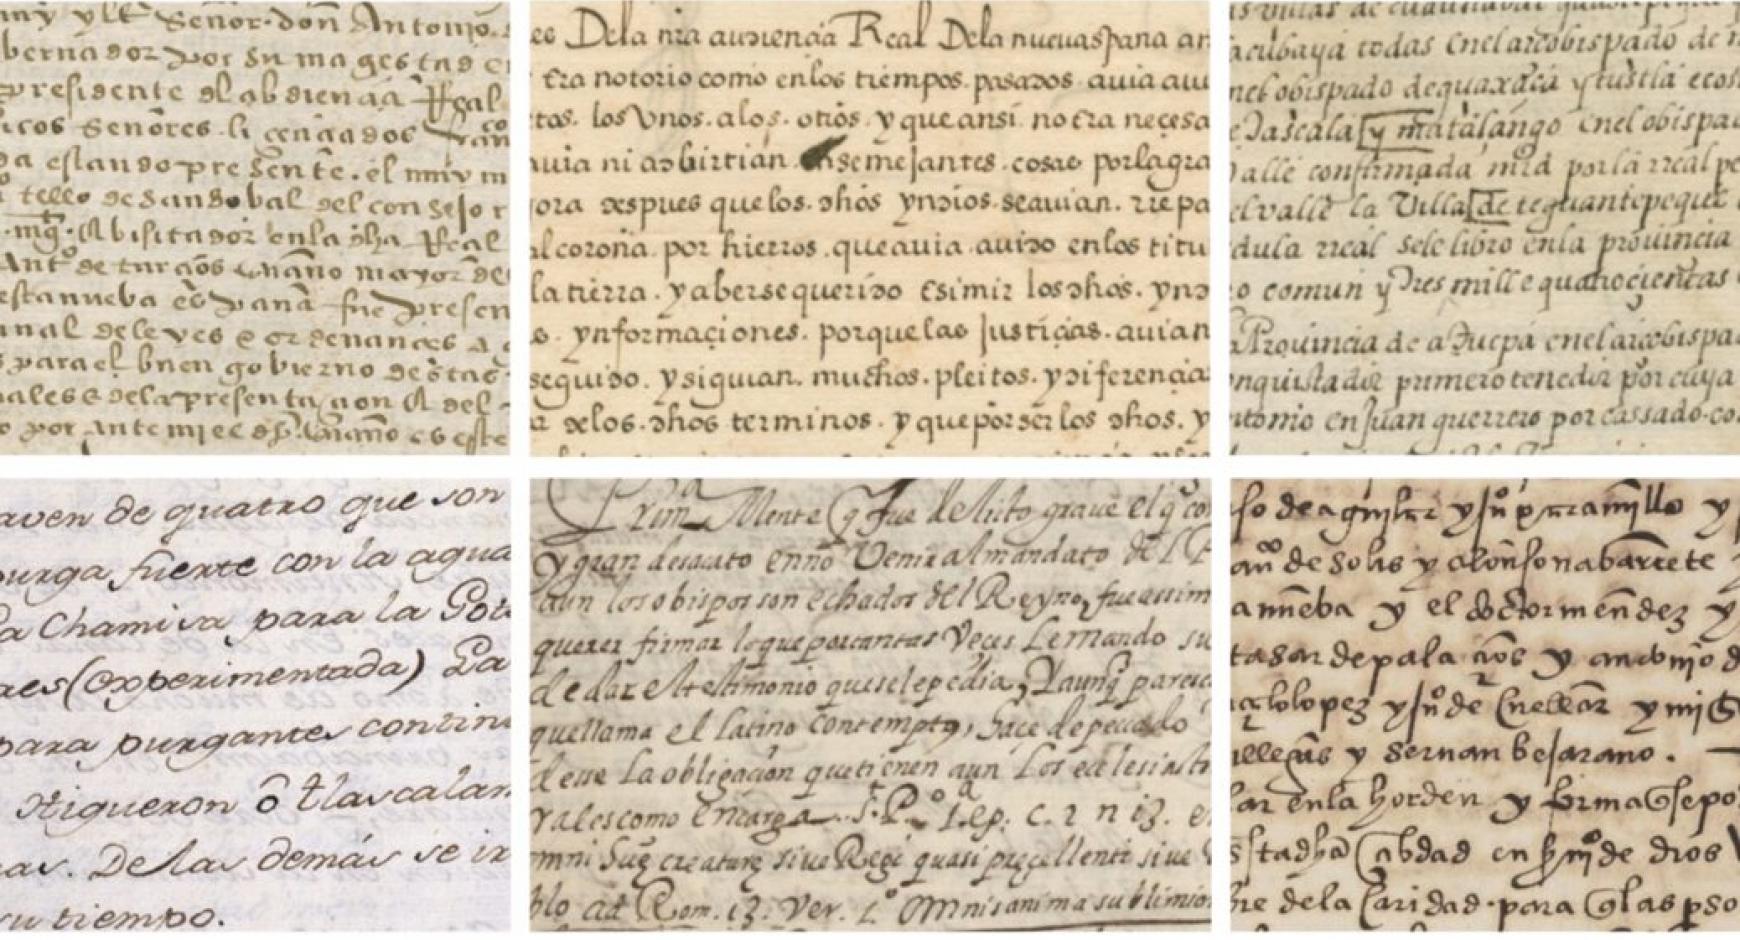 muy yllᵉ Señor don Antonio
bernador por su magestad e
presidente del abdiençia Real
icos Señores liçençiados
da estando presente. el muy m
tello de sandobal del consejo r
mgᵗ. A bisitador en la dha Real
Antº de turçios escriuano mayor de
esta nueba españa fue presen
de leyes e ordenanças
para el buen gobierno destas
ales e de la presentaçion
o por ante mi el dho escriuano es este
Dela nra audiençia Real Dela nueuaspana an
Era notorio como enlos tiempos. pasados. auia aui
tas. los Vnos. alos. otros. y queansi. noera neçesa
auia ni adbirtian. semejantes. cosas porlagra
ora despues quelos. dhos yndios. seauian. rrepa
al corona. por hierros. queauia. auido enlos titu
la tierra. yaberse querido Esimir los dhos. ynd
s. ynformaçiones. porquelas Justiçias. auian
seguido. ysiguian. muchos. pleitos. ydiferençia
delos. dhos terminos. y que por ser los dhos. y
acubaya todas Enel arcobispado de m
nel obispado deguaxaca y tustla ecos
e Tascala y matalango Enel obispad
Valle confirmada mrd por la rreal pe
el valle la Villa de teguantepeque
dula rreal sele libro en la prouincia
o comun y Tres mill e quatrocientas
Prouincia de a Tucpa enel arcobispa
nquistador primero tenedor por cuya
ntonio en Juan guerrero por cassado co
aven de quatro que son
purga fuerte con la agua
a Chamisa para la Got
res (experimentada) La
para purgantes contin
Higueron ô tlascalan
as. De las demás se ir
su tiempo.
Prim Mente q̃ fue delicto graue el q̃ co
y gran desacato enno Venir al mandato del P
aun los obispos son echados del Reyno, fue assim
querer firmar lo que por tantas Veces Lemando su
de dar el testimonio que se le pedia, Y aunq̃ paresc
que llama el latino contempto, hace de pecado
desse La obligacion que tienen aun Los ecclesiasti
tales como Encarga S. Pº 1. ep. c. 2 n 13.
omni Suę creaturę siue Regi quasi pręcellenti siue
blo ad Rom. 13. Ver. 1º Omnis anima sublimior
so de aguilar y juº xaramillo y
anº de solis y alonso nabarrete
a nueba y el doctor mendez y
tasar de palaçios y antonio d
lopez y juº de Cuellar y mig
illegas y hernan bejarano.
lar en la horden y forma q̃ se po
s tad ha Cabdad en hmº de dios
re de la Caridad para q̃ las pso